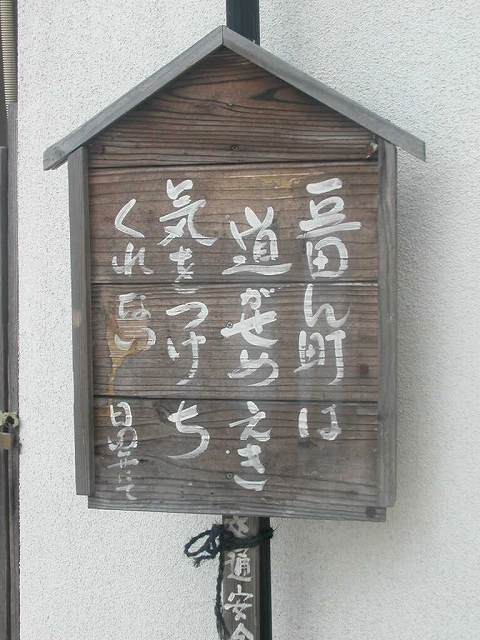 豆田ん町は
道がせめえき
気をつけち
くれない 日田弁にて
交通安全